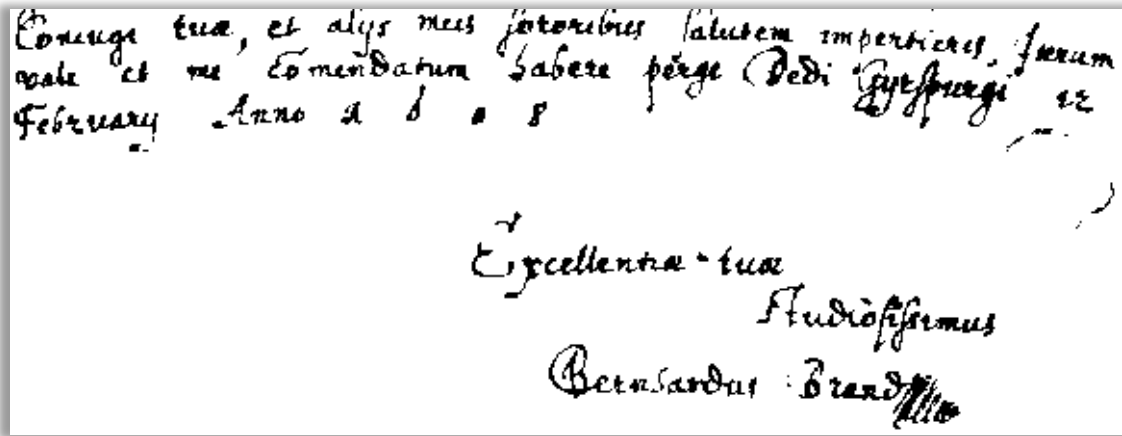 Coniugi tuæ, et alijs meis sororibus salutem impertieris. Iterum
vale et me Comendatum habere perge Dedi Gyrspurgi 12
February Anno 1 6 0 8
Excellentiæ tuæ
Studiosissimus
Bernhardus Brand